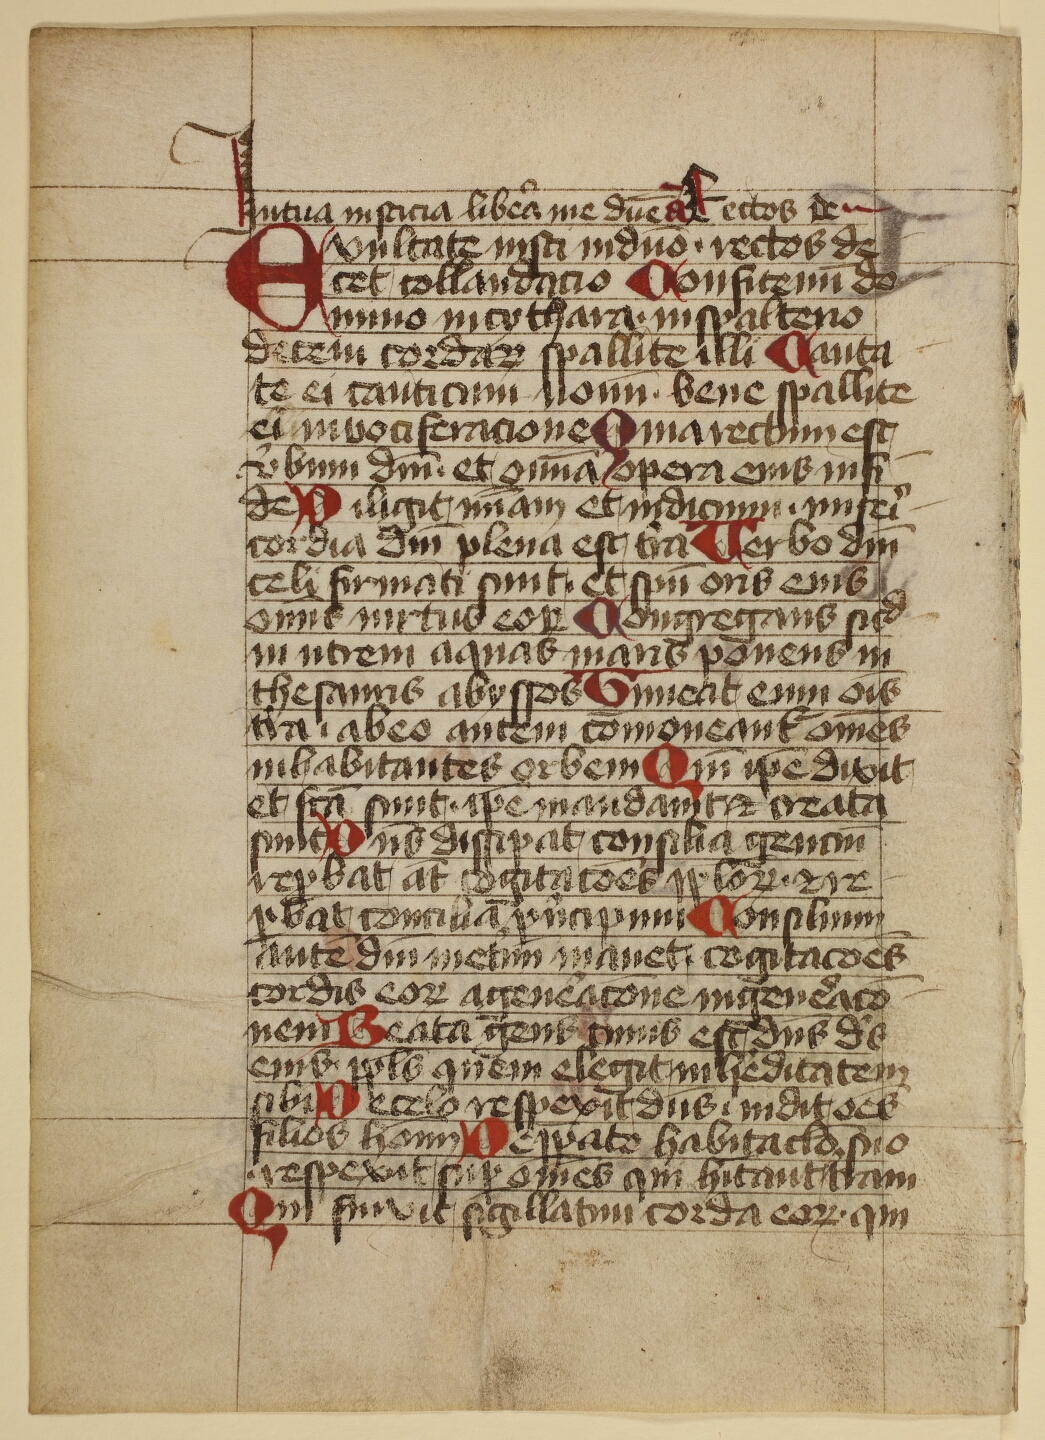 In tua iusticia libera me dne A Rectos de
Exultate iusti in dno · rectos de
cet collaudacio Confitemini do
mino in cythara · in spalterio
decem cordar spallite illi Canta
te ei canticum nouu · bene spallite
ei in vociferacione Quia rectum est
vbum dni · et omia opera eius in fi
de Diligit miam et iudicium · miseri
cordia dni plena est tra Verbo dni
celi firmati sunt · et spu oris eius
omis uirtus eor Congregans sicd
in utrem aquas maris ponens in
thesauris abyssos Timeat enim ois
tra · ab eo autem comoueantr omes
inhabitantes orbem Qm ipe dixit
et fca sunt · ipe mandauit et creata
sunt Dns dissipat consilia genciu
reprobat at cogitacoes pplor · et re
probat concilia principum Consilium
aute dni in eternu manet · cogitacoes
cordis eor a generacone in generaco
nem Beata gens cuius est dns ds
eius · ppls quem elegit in hereditatem
sibi De celo respexit dns · uidit oes
filios homi De pparato habitaclo suo
respexit sup omes qui hitant tram
Qui finxit sigillatim corda eor · qui